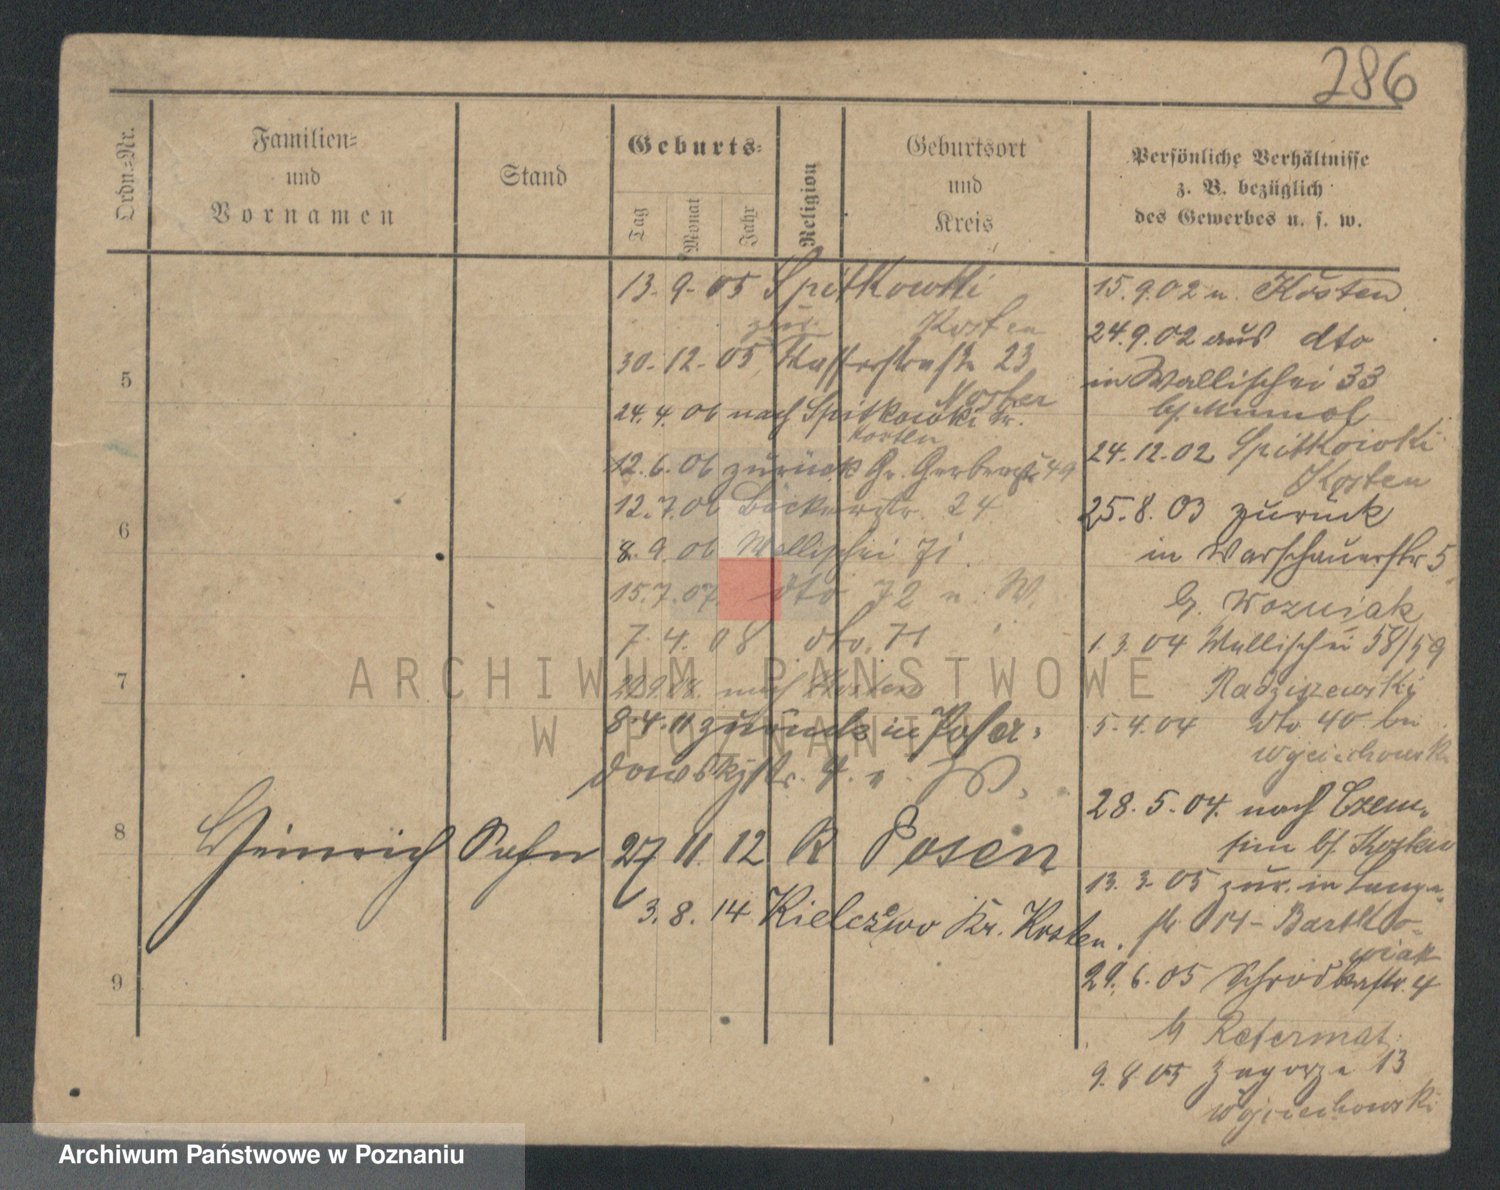 286
Ordn.-Nr.
Familien-
und
Vornamen
Stand
Geburts-
Tag
Monat
Jahr
Religion
Geburtsort
und
Kreis
Persönliche Verhältnisse
z. B. bezüglich
des Gewerbes u. s. w.
13. 9. 05 Spitkowki
zur. Kosten
30. 12. 05 Wasserstraße 23
24. 4. 06 nach Spitkowki Kr.
Kosten
12. 6. 06 zurück Gr. Gerberstr 49
12. 7. 06 Bäckerstr. 24
8. 9. 06 Wallischei 71
15. 7. 07. dto 72 n. W.
7. 4. 08 dto. 71
nach Kosten
8. 4. 11 zurück in Posa-
dowskystr. 9.
5
6
7
8
Heinrich Sohn 27 11. 12 K Posen
3. 8. 14 Kielczewo Kr. Kosten.
9
15. 9. 02 n. Kosten
24. 9. 02 aus dto
in Wallischei 33
bei
24. 12. 02 Spitkowki
Kosten
25. 8. 03 zurück
in Warschauerstr 5
b. Wozniak
1. 3. 04 Wallischei 58/59
Radziszewski
5. 4. 04 dto 40 bei
Wojciechowski
28. 5. 04. nach Czem-
pin b/ Kosten
13. 3. 05 zur. in Lange-
str 14 - Bartko-
wiak
29. 6. 05 Schrodkastr. 4
b
9. 8. 05 Zagorze 13
Wojciechowski
ARCHIWUM PAŃSTWOWE
W POZNANIU
Archiwum Państwowe w Poznaniu